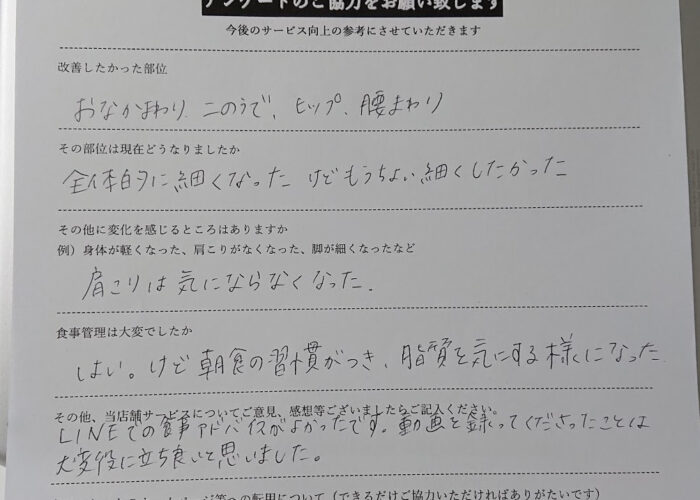 アンケートのご協力をお願い致します
今後のサービス向上の参考にさせていただきます
改善したかった部位
おなかまわり、二のうで、ヒップ、腰まわり
その部位は現在どうなりましたか
全体的に細くなった けどもうちょい細くしたかった
その他に変化を感じるところはありますか
例）身体が軽くなった、肩こりがなくなった、脚が細くなったなど
肩こりは気にならなくなった。
食事管理は大変でしたか
はい。けど朝食の習慣がつき、脂質を気にする様になった
その他、当店舗サービスについてご意見、感想等ございましたらご記入ください。
LINEでの食事アドバイスがよかったです。動画を録ってくださったことは
大変役に立ち良いと思いました。
等への転用について（できるだけご協力いただければありがたいです）